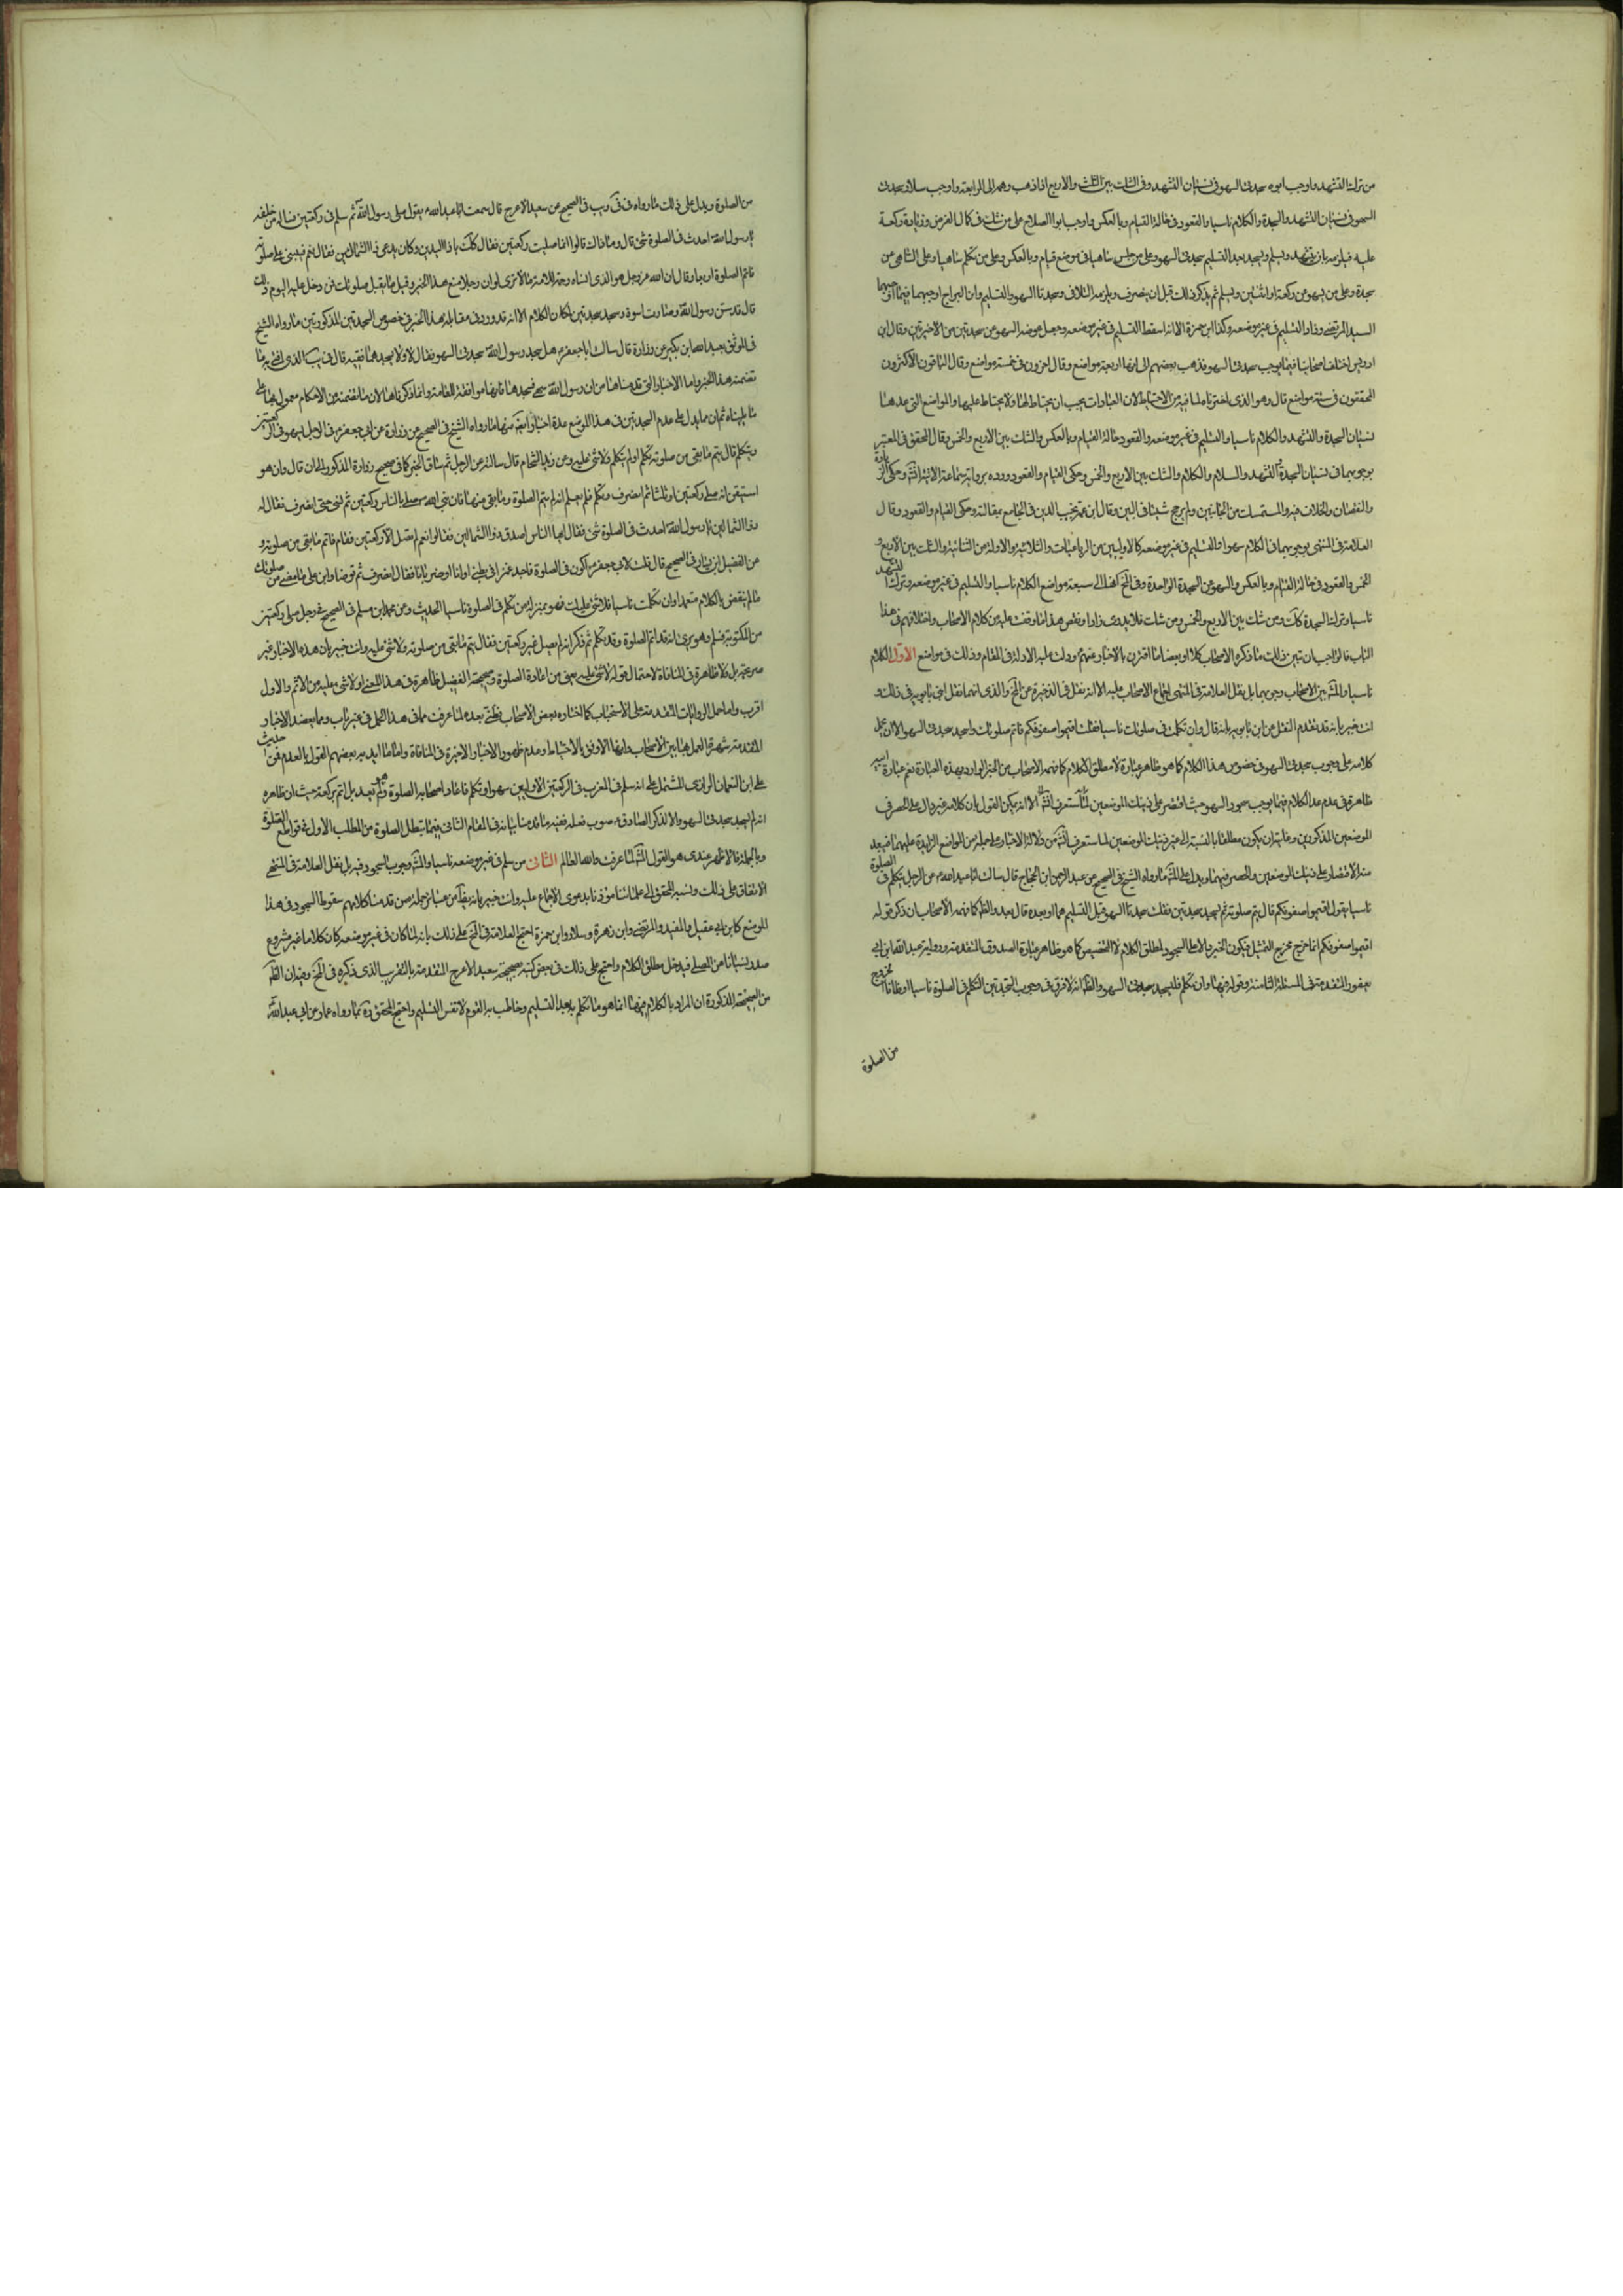 من ترك التشهد واوجب ابوه سجدتى السهو فى نسيان التشهد وفى الشك بين الثلث والاربع اذا ذهب وهمه الى الرابعة واوجب سلار سجدتى
السهو فى نسيان التشهد والسجدة والكلام ناسيا والقعود فى حالة القيام وبالعكس واوجب ابو الصلاح على من شك فى كمال الفرض وزيادة ركعة
عليه فيلزمه بان يتشهد ويسلم ويسجد بعد التسليم سجدتى السهو وعلى من جلس ساهيا فى موضع قيام وبالعكس وعلى من تكلم ساهيا وعلى الساهى عن
سجدة وعلى من يسهو عن ركعة او اثنتين ويسلم ثم يذكر ذلك قبل ان ينصرف ويلزمه التلافى وسجدتا السهو والتسليم وابن البراج اوجبهما فيما اوجبهما
السيد المرتضى وزاد التسليم فى غير موضعه وكذا ابن حمزة الا انه اسقط التسليم فى غير موضعه وجعل عوضه السهو عن سجدتين من الاخيرتين وقال ابن
ادريس اختلف اصحابنا فيما يوجب سجدتى السهو فذهب بعضهم الى انها اربعة مواضع وقال اخرون فى خمسة مواضع وقال الباقون الاكثرون
المحققون فى ستة مواضع قال وهو الذى اخترناه لما فيه من الاحتياط لان العبادات يجب ان يحتاط لها ولا يحتاط عليها والمواضع التى عدها
نسيان السجدة والتشهد والكلام ناسيا والتسليم فى غير موضعه والقعود حالة القيام وبالعكس والشك بين الاربع والخمس وقال المحقق فى المعتبر
بوجوبهما فى نسيان السجدة والتشهد والسلام والكلام والشك بين الاربع والخمس وحكى القيام والقعود وروده برواية سماعة الاتية وحكى الزيادة
والنقصان والخلاف فيه والمستمسك من الجانبين ولم يرجح شيئا فى البين وقال ابن عمه نجيب الدين فى الجامع بمقالته وحكى القيام والقعود وقال
العلامة فى المنتهى بوجوبهما فى الكلام سهوا والتسليم فى غير موضعه كالاوليين من الرباعيات والثلاثية والاولة من الثنائية والشك بين الاربع و
الخمس والقعود فى حالة القيام وبالعكس والسهو عن السجدة الواحدة وفى لف كلها الى سبعة مواضع الكلام ناسيا والتسليم فى غير موضعه وترك التشهد
ناسيا وترك السجدة كك ومن شك بين الاربع والخمس ومن شك فلا يدرى زاد او نقص هذا ما وقفت عليه من كلام الاصحاب واختلافهم فى هذا
الباب فالواجب ان نبين ذلك ما ذكره الاصحاب كلا او بعضا ما اقترن بالاخبار عنهم ودلت عليه الادلة فى المقام وذلك فى مواضع الاول الكلام
ناسيا والمش بين الاصحاب وجوبهما بل نقل العلامة فى المنتهى اجماع الاصحاب عليه الا انه نقل فى الذخيرة عن لف والذى انهما نقل ابنى بابويه فى ذلك و
انت خبير بانه قد تقدم النقل عن ابن بابويه بانه قال وان تكلمت فى صلوتك ناسيا فقلت اقيموا صفوفكم فاتم صلوتك واسجد سجدتى السهو الا ان يحمل
كلامه على وجوب سجدتى السهو فى خصوص هذا الكلام كما هو ظاهر عبارة لا مطلق الكلام كما فهمه الاصحاب من الخبر الوارد بهذه العبارة نعم عبارة ابيه
ظاهرة فى عدم عد الكلام فيما يوجب سجود السهو حيث اقتصر على ذينك الموضعين لما ستعرف انش الا انه يمكن القول بان كلامه غير دال على الحصر فى
الموضعين المذكورين وغايته ان يكون مطلقا بالنسبة الى غير ذينك الموضعين لما ستعرف انش من دلالة الاخبار على جملة من المواضع الزايدة عليهما فيبعد
منه الاقتصار على ذينك الموضعين والحصر فيهما ويدل على المش ما رواه الشيخ فى الصحيح عن عبد الرحمن ابن الحجاج قال سالت ابا عبد الله ع عن الرجل يتكلم فى الصلوة
ناسيا يقول اقيموا صفوفكم قال يتم صلوته ثم يسجد سجدتين فقلت سجدتا السهو قبل التسليم هما او بعده قال بعد والظ كما فهمه الاصحاب ان ذكر قوله
اقيموا صفوفكم انما خرج مخرج التمثيل فيكون الخبر دالا على السجود لمطلق الكلام لا التخصيص كما هو ظاهر عبارة الصدوق المتقدمة ورواية عبد الله ابن ابى
يعفور المتقدمة فى المسئلة الثامنة وقوله فيها وان تكلم فليسجد سجدتى السهو والظ انه لا فرق فى وجوب السجدتين التكلم فى الصلوة ناسيا او ظانا الخروج
من الصلوة
من الصلوة ويدل على ذلك ما رواه فى فى ويب فى الصحيح عن سعيد الاعرج قال سمعت ابا عبد الله ع يقول صلى رسول الله ص ثم سلم فى ركعتين فساله من خلفه
يا رسول الله احدث فى الصلوة شئ قال وما ذاك قالوا انما صليت ركعتين فقال كك يا ذا اليدين وكان يدعى ذا الشمالين فقال نعم فبنى على صلوته
فاتم الصلوة اربعا وقال ان الله عز وجل هو الذى انساه رحمة للامة الا ترى لو ان رجلا صنع هذا لعير وقيل ما يقبل صلوتك فمن دخل عليه اليوم ذلك
قال قد سن رسول الله وصارت اسوة وسجد سجدتين لمكان الكلام الا انه قد ورد فى مقابلة هذا الخبر فى خصوص السجدتين المذكورتين ما رواه الشيخ
فى الموثق بعبد الله ابن بكير عن زرارة قال سالت ابا جعفر ع هل سجد رسول الله سجدتى السهو فقال لا ولا يسجدهما فقيه قال فى يب الذى افتى به ما
تضمنه هذا الخبر واما الاخبار التى قدمناها من ان رسول الله سهى فسجدها فانها موافقة للعامة وانما ذكرناها لان ما تتضمنه من الاحكام معمول بها على
ما بيناه ثم ان ما يدل على عدم السجدتين فى هذا الموضع عدة اخبار ايضا منها ما رواه الشيخ فى الصحيح عن زرارة عن ابى جعفر ع فى الرجل يسهو فى الركعتين
ويتكلم قال يتم ما بقى من صلوته تكلم او لم يتكلم ولا شئ عليه وعن زيد الشحام قال سالته عن الرجل ثم ساق الخبر كما فى صحيح زرارة المذكور الى ان قال وان هو
استيقن انه صلى ركعتين او ثلثا ثم انصرف وتكلم فلم يعلم انه لم يتم الصلوة وما بقى منها فان نبى الله صلى بالناس ركعتين ثم نسى حتى انصرف فقال له
ذو الشمالين يا رسول الله احدث فى الصلوة شئ فقال ايها الناس اصدق ذو الشمالين فقالوا نعم لم تصل الا ركعتين فقام فاتم ما بقى من صلوته و
عن الفضيل ابن يسار فى الصحيح قال قلت لابى جعفر ع اكون فى الصلوة فاجد غمزا فى بطنى او اذا او ضربانا فقال انصرف ثم توضا وابن على ما مضى من صلوتك
ما لم تنقض بالكلام متعمدا وان تكلمت ناسيا فلا شئ عليك فهو بمنزلة من تكلم فى الصلوة ناسيا الحديث وعن محمد ابن مسلم فى الصحيح فى رجل صلى ركعتين
من المكتوبة فسلم وهو يرى انه قد اتم الصلوة وقد تكلم ثم ذكر انه لم يصل غير ركعتين فقال يتم ما بقى من صلوته ولا شئ عليه وانت خبير بان هذه الاخبار غير
صريحة بل ولا ظاهرة فى المنافاة لاحتمال قوله لا شئ عليه يعنى من اعادة الصلوة وصحيحة الفضيل ظاهرة فى هذا المعنى او لا شئ عليه من الاثم والاول
اقرب واما حمل الروايات المتقدمة على الاستحباب كما اختاره بعض الاصحاب فظنى بعده لما عرفت مما فى هذا الحمل فى غير باب ومما يعضد الاخبار
المتقدمة شهرة العمل بها بين الاصحاب وانها الاوفق بالاحتياط وعدم ظهور الاخبار الاخيرة فى المنافاة واما ما ايد به بعضهم القول بالعدم من حديث
على ابن النعمان الرازى المشتمل على انه سلم فى المغرب فى الركعتين الاوليين سهوا وتكلم فاعاد اصحابه الصلوة ولم يعد بل اتم بركعة حيث ان ظاهره
انه لم يسجد سجدتى السهو والا لذكر الصادق ع صوب فعله ففيه ما قدمنا بيانه فى المقام الثانى فيما يبطل الصلوة من المطلب الاول فى قواطع الصلوة
وبالجملة فالاظهر عندى هو القول المش لما عرفت والله العالم الثانى من سلم فى غير موضعه ناسيا والمش وجوب السجود فيه بل نقل العلامة فى المنتهى
الاتفاق على ذلك ونسبه المحقق الى علمائنا مؤذنا بدعوى الاجماع عليه وانت خبير بانه نقل من عبائر جملة ممن قدمنا كلامهم سقوط السجود فى هذا
الموضع كابن ابى عقيل والمفيد والمرتضى وابن زهرة وسلار وابن حمزة احتج العلامة فى لف على ذلك بانه لما كان فى غير موضعه كان كلاما غير مشروع
صدر نسيانا من المصلى فيدخل مطلق الكلام واحتج على ذلك فى بعض كتبه بصحيحة سعيد الاعرج المتقدمة بالتقريب الذى ذكره فى لف وفيه ان الظ
من الصحيحة المذكورة ان المراد بالكلام فيها انما هو ما تكلم به بعد التسليم وخاطب به القوم لا نفس التسليم واحتج المحقق ره بما رواه عمار عن ابى عبد الله